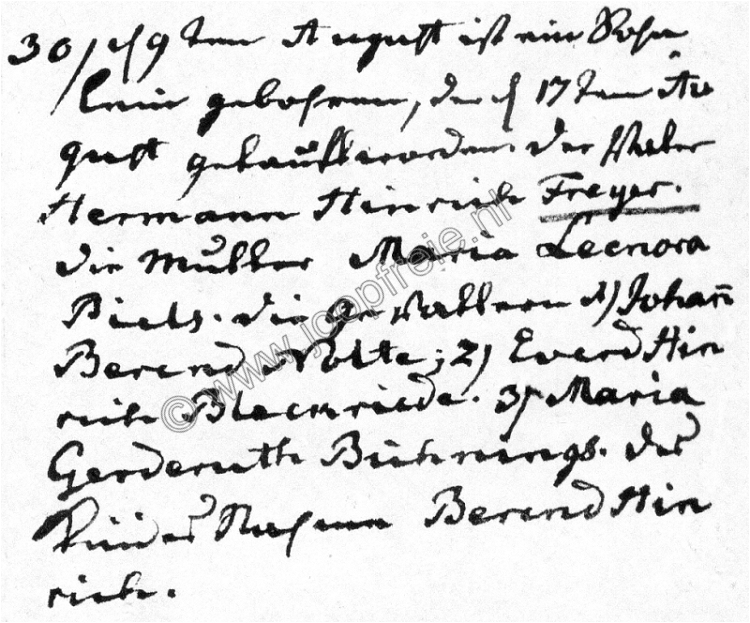 30, d 9 ten August ist ein Sohn
lein gebohren, den d 17 ten Au
gust getauft worden. der Vater
Hermann Hinrich Freyer.
die Mutter Maria Leenora
Biels. die gevattern 1) Johan̄
Berend Nolte; 2) Everd Hin
rich Blecmriede. 3) Maria
Gerderuth Buhnings. des
Kindes Nahmen Berend Hin
rich.
©www.joopfreije.nl